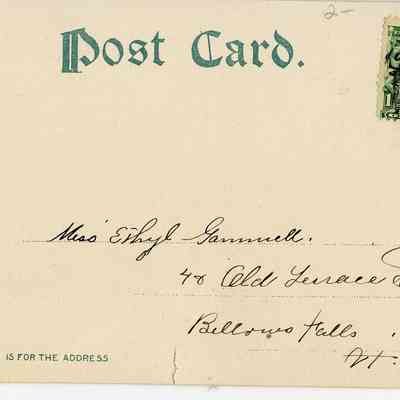 2-
Post Card.
Miss Ethyl Gammell.
48 Old Terrace
Bellows Falls.
Vt.
IS FOR THE ADDRESS